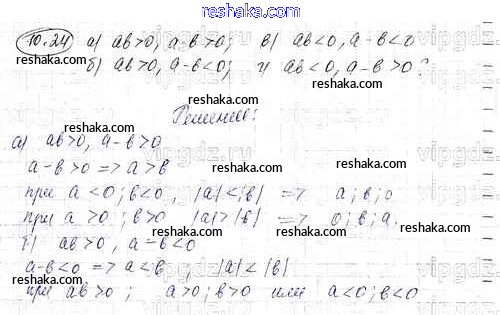 reshaka.com
10.24 а) ab>0, a-b>0; в) ab<0, a-b<0
б) ab>0, a-b<0; г) ab<0, a-b>0?
reshaka.com reshaka.com
Решение:
reshaka.com
а) ab>0, a-b>0
reshaka.com
a-b>0 => a>b
при a<0; b<0, |a|<|b| => a; b; 0
при a>0; b>0 |a|>|b| => 0; b; a.
б) ab>0, a-b<0
reshaka.com
a-b<0 => a<b, |a|<|b|
reshaka.com reshaka.com
при ab>0; a>0; b>0 или a<0; b<0
reshaka.com